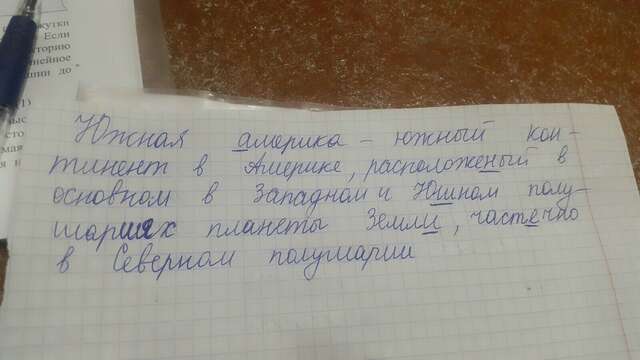 жутки
Если
торию
нейное
ции до
1)
ыс
сто
мая
Южная америка – южный кон-
тинент в Америке, расположеный в
основном в Западном и Юшном полу-
шариях планеты Земли, частечно
в Северном полушарии